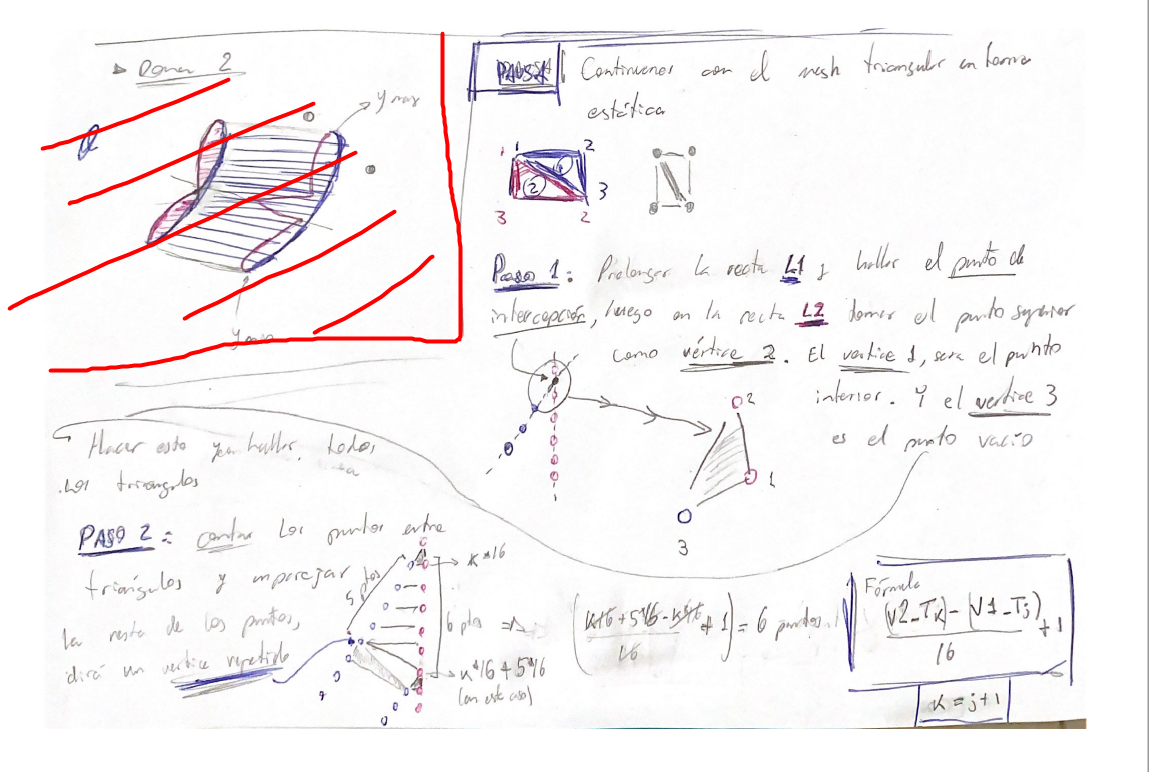 2
y max
PAUSA
Continuemos con el mesh triangular en forma
estática
1 2
1
2
3
3 2
Paso 1: Prolongar la recta L1 y hallar el punto de
intercepción, luego en la recta L2 tomar el punto superior
como vértice 2. El vertice 1, sera el punto
interior. Y el vertice 3
es el punto vacío
2
1
3
Hacer esto hallar todos
los triangulos
PASO 2: contar los puntos entre
triángulos y emparejar
la resta de los puntos,
dirá un vertice repetido
5 ptos
k*16
6 ptos =>
k*16 + 5*16
(en este caso)
(k*16+5*16-k*16 / 16 + 1) = 6 puntos
Fórmula
(V2_Tk) - (V1_Tj) + 1
16
k = j+1